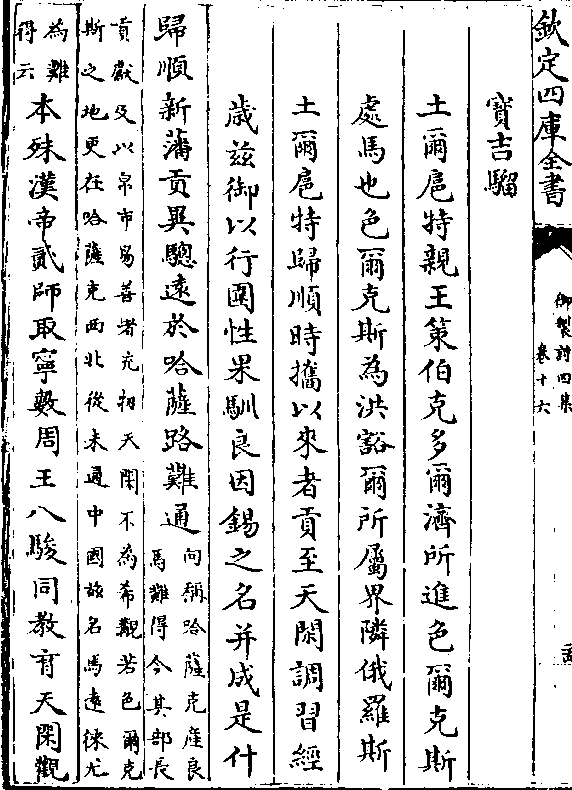 欽定四庫全書
御製詩四集
卷十六
寶吉騮
土爾扈特親王策伯克多爾濟所進色爾克斯
處馬也色爾克斯為洪豁爾所屬界隣俄羅斯
土爾扈特歸順時攜以來者貢至天閑調習經
歲兹御以行圍性果馴良因錫之名并成是什
歸順新藩貢異驄遠於哈薩路難通
向稱哈薩克產良
馬難得今其部長
貢獻及以帛市易善者充牣天閑不為希觀若色爾克
斯之地更在哈薩克西北從未通中國故名馬遠徠尤
為難
得云
本殊漢帝貳師取寧數周王八駿同教育天閑觀